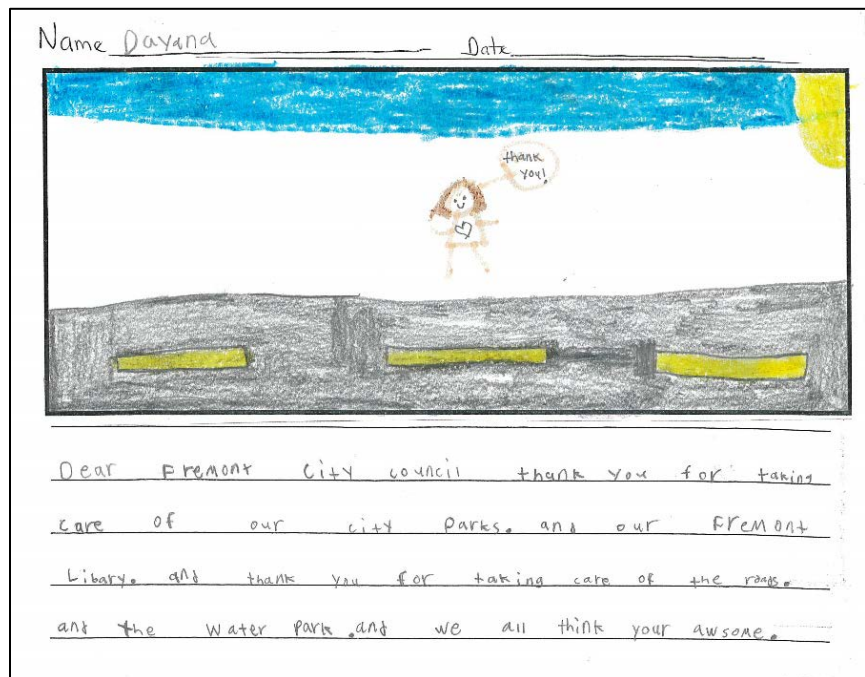 Name Dayana Date
thank
you!
Dear Fremont City council thank you for taking
care of our city Parks. and our Fremont
Libary. and thank you for taking care of the roads.
and the Water Park. and we all think your awsome.